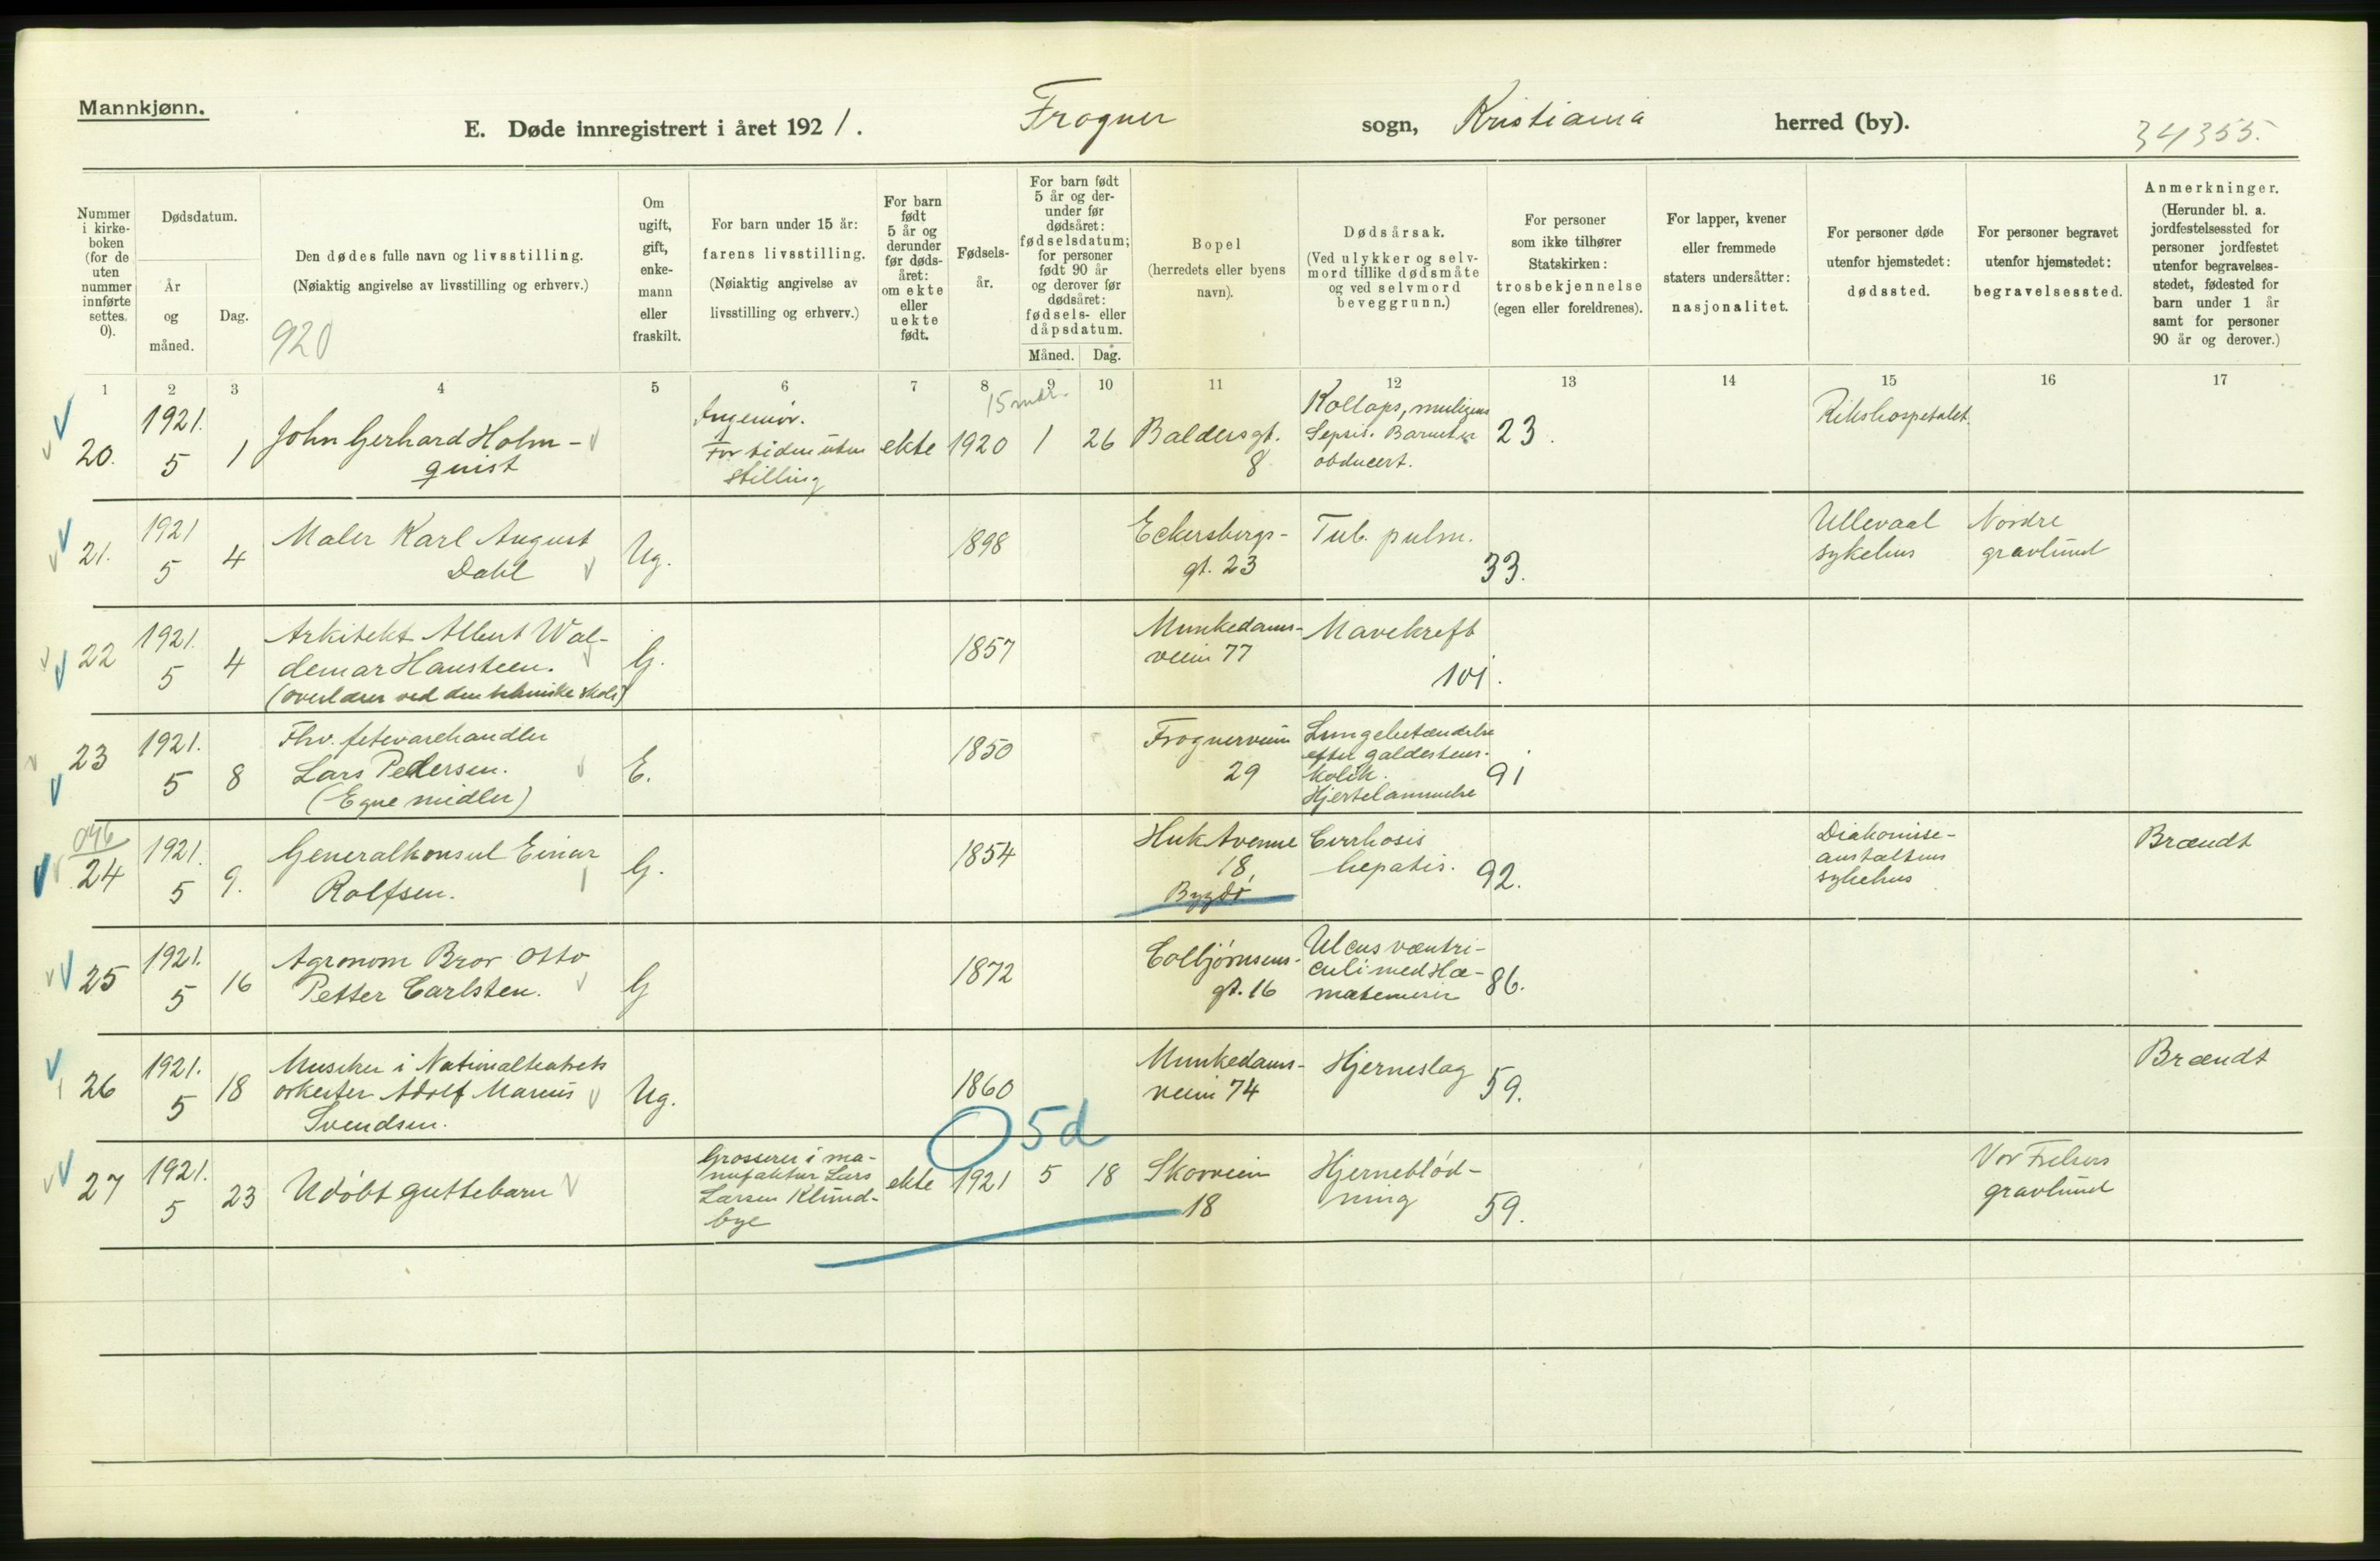 Mannkjønn.
E. Døde innregistrert i året 1921. Frogner sogn, Kristiania herred (by). 34355.
Nummer i kirke-boken (for de uten nummer innførte settes 0).
Dødsdatum.
År og måned.
Dag.
Den dødes fulle navn og livsstilling.
(Nøiaktig angivelse av livsstilling og erhverv.)
920
Om ugift, gift, enke-mann eller fraskilt.
For barn under 15 år:
farens livsstilling.
(Nøiaktig angivelse av
livsstilling og erhverv.)
For barn født 5 år og derunder før døds-året: om ekte eller uekte født.
Fødsels-år.
For barn født 5 år og der-under før dødsåret: fødselsdatum; for personer født 90 år og derover før dødsåret: fødsels- eller dåpsdatum.
Måned. Dag.
Bopel
(herredets eller byens navn).
Dødsårsak.
(Ved ulykker og selv-mord tillike dødsmåte og ved selvmord beveggrunn.)
For personer som ikke tilhører Statskirken: trosbekjennelse (egen eller foreldrenes).
For lapper, kvener eller fremmede staters undersåtter: nasjonalitet.
For personer døde utenfor hjemstedet: dødssted.
For personer begravet utenfor hjemstedet: begravelsessted.
Anmerkninger.
(Herunder bl. a. jordfestelsessted for personer jordfestet utenfor begravelses-stedet, fødested for barn under 1 år samt for personer 90 år og derover.)
1 2 3 4 5 6 7 8 9 10 11 12 13 14 15 16 17
20. 1921. 5 1 John Gerhard Holm-
quist
Ingeniør.
For tiden uten
stilling
ekte 15 mdr. 1920 1 26 Baldersgt.
8
Kollaps, muligens
Sepsis. Barnet er
obducert.
23.
Rikshospitalet.
21. 1921 5 4 Maler Karl August
Dahl
Ug. 1898 Eckersbergs-
gt. 23
Tub. pulm.
33.
Ullevaal
sykehus
Nordre
gravlund
22 1921. 5 4 Arkitekt Albert Wal-
demar Hansteen.
(overlærer ved den tekniske skole)
G. 1857 Munkedams-
veien 77
Mavekreft
101.
23 1921. 5 8 Fhv. fetevarehandler
Lars Pedersen.
(Egne midler)
E. 1850 Frognerveien
29
Lungebetændelse
efter galdestens-
kolik.
Hjertelammelse
91
046
24 1921. 5 9. Generalkonsul Einar
Rolfsen.
G. 1854 Huk Avenue
18,
Bygdø
Cirrhosis
hepatis.
92.
Diakonisse-
anstaltens
sykehus
Brændt
25 1921. 5 16 Agronom Bror Otto
Petter Carlsten.
G 1872 Colbjørnsens-
gt. 16
Ulcus ventri-
culi med Hæ-
matemesis
86.
26 1921. 5 18 Musiker i Nationalteatrets
orkester Adolf Marius
Svendsen.
Ug. 1860 Munkedams-
veien 74
Hjerneslag
59.
Brændt
27 1921. 5 23 Udøbt guttebarn
Grosserer i ma-
nufaktur Lars
Larsen Klund-
bye
ekte O 5d 1921 5 18 Skovveien
18
Hjerneblød-
ning
59.
Vor Frelsers
gravlund